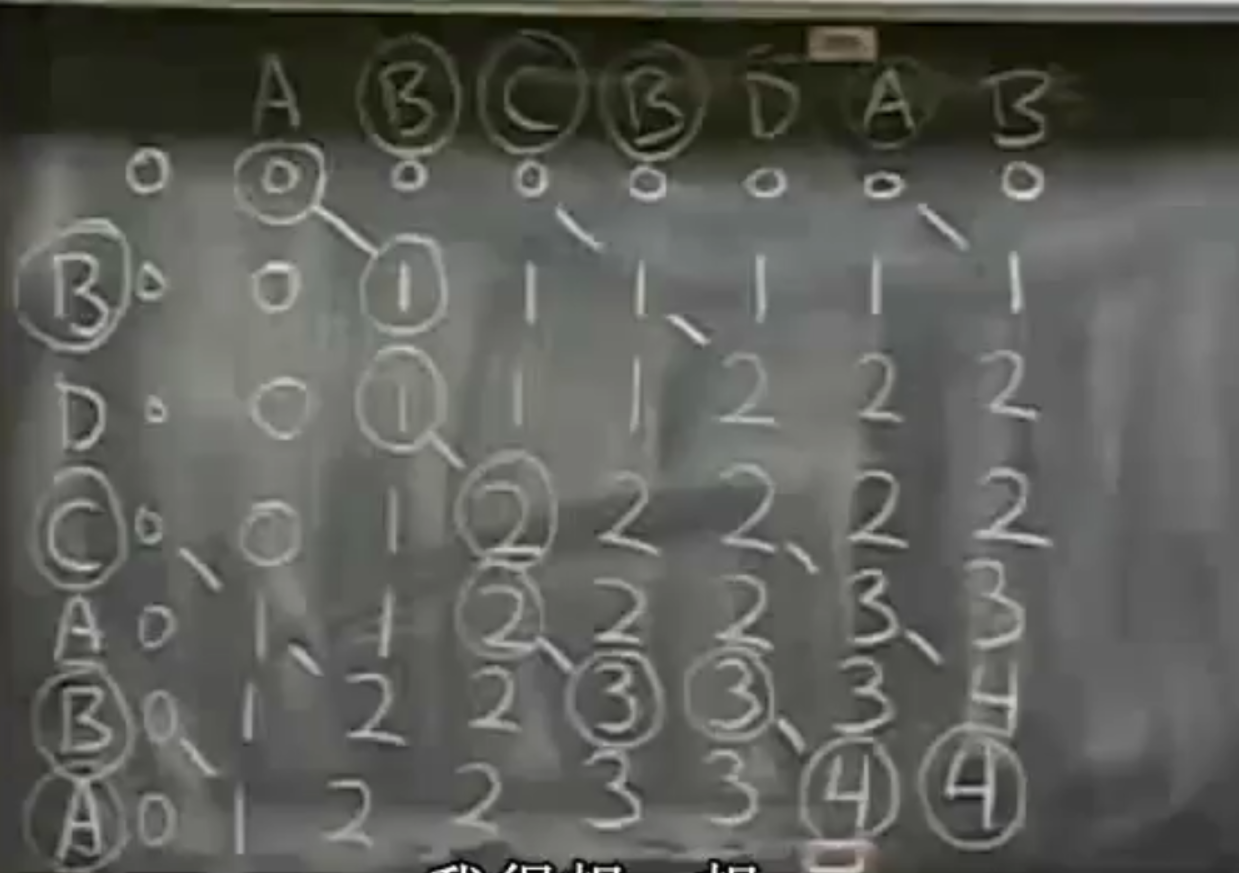 A B C B D A B
0 0 0 0 0 0 0 0
B 0 0 1 1 1 1 1 1
D 0 0 1 1 1 2 2 2
C 0 0 1 2 2 2 2 2
A 0 1 1 2 2 2 3 3
B 0 1 2 2 3 3 3 4
A 0 1 2 2 3 3 4 4